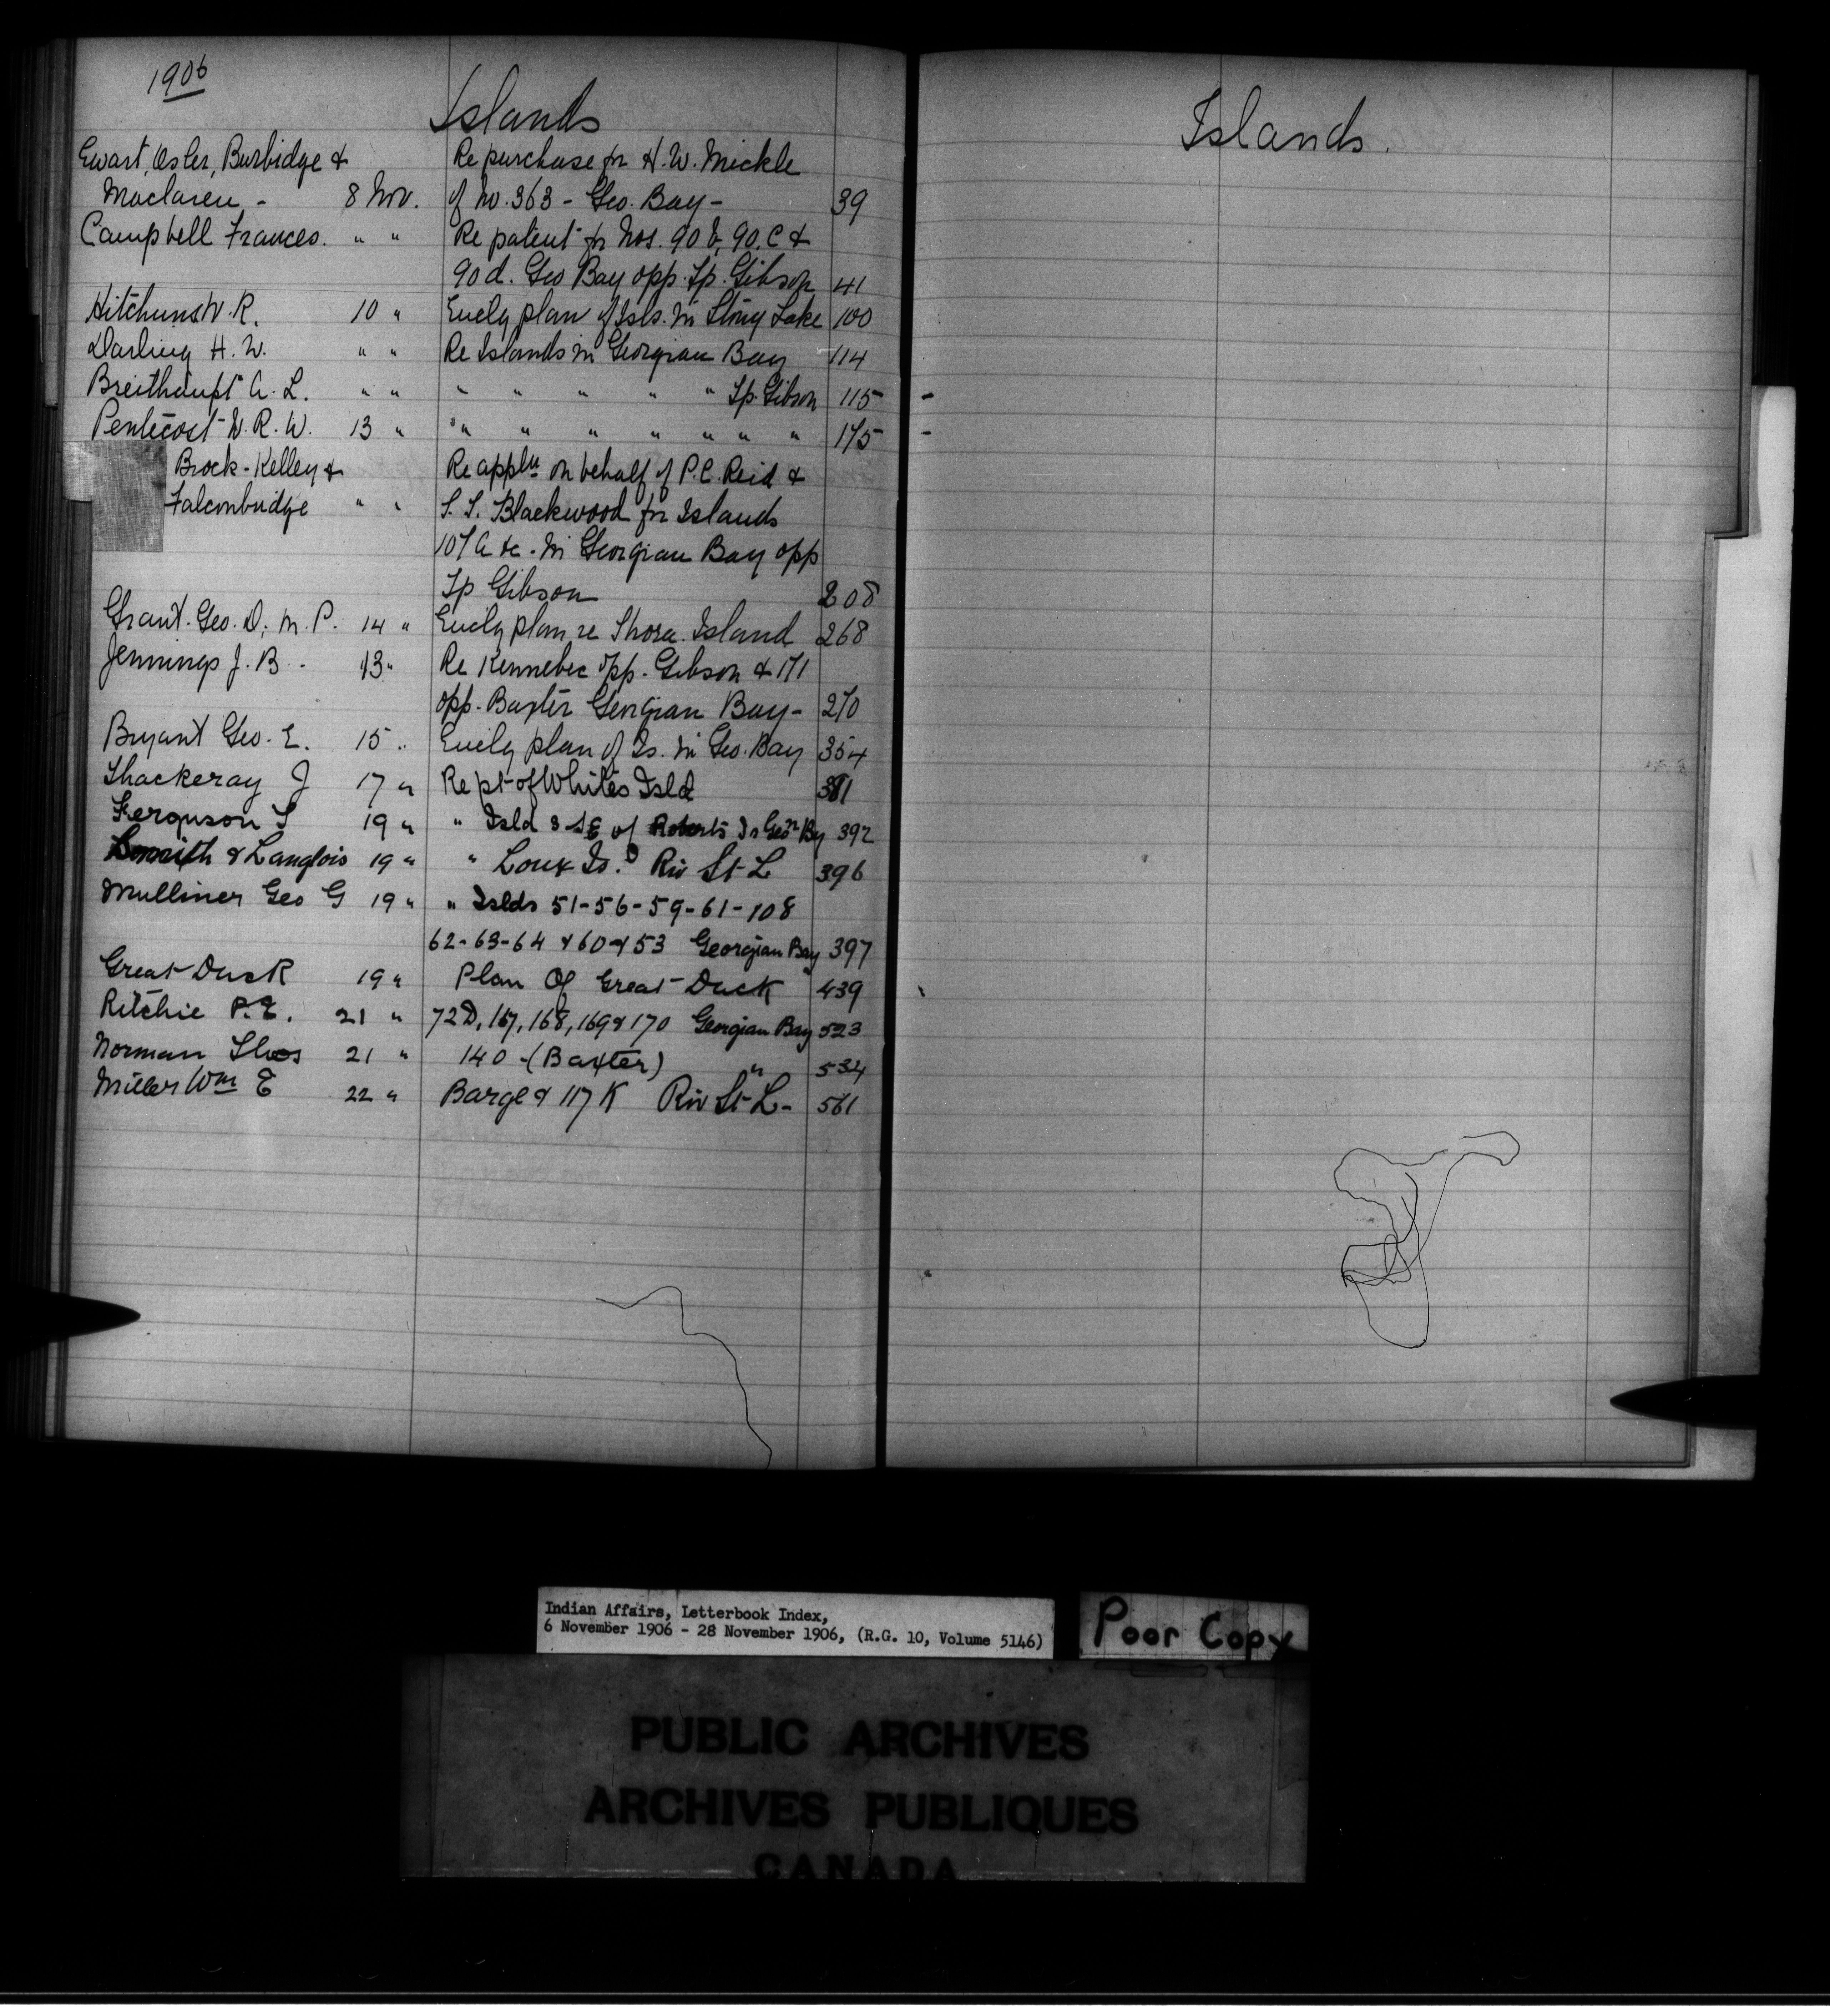 1906
Islands
Ewart, Osler, Burbidge & Re purchase for H. W. Mickle
Maclaren - 8 Nov. of No. 363 - Geo. Bay - 39
Campbell Frances. " " Re patent for Nos. 90 b, 90. C &
90 d. Geo Bay opp. Tp. Gibson 41
Hitchins W. R. 10 " Encly plan of Isls. in Stony Lake 100
Darling H. W. " " Re Islands in Georgian Bay 114
Breithaupt A. L. " " " " " " " Tp. Gibson 115
Pentecost W. R. W. 13 " " " " " " " " 175
Brock - Kelley & Re appln on behalf of P. C. Reid &
Falconbridge " " S. S. Blackwood for Islands
107 A &c. in Georgian Bay opp
Tp Gibson 208
Grant. Geo. D, M. P. 14 " Encly plan re Thora. Island 268
Jennings J. B. - 13 " Re Kennebec opp. Gibson & 171
opp. Baxter Georgian Bay - 270
Bryant Geo. E. 15 " Encly plan of Is. in Geo. Bay 354
Thackeray J 17 " Re pt of Whites Isld 381
Ferguson T 19 " " Isld 8 SE of Roberts Is Geon By 392
& Langlois 19 " " Is. Riv St. L 396
Mulliner Geo G 19 " " Islds 51-56-59-61-108
62-63-64 & 60 & 53 Georgian Bay 397
Great Duck 19 " Plan Of Great Duck 439
Ritchie P. E. 21 " 72D, 167, 168, 169 & 170 Georgian Bay 523
Norman Thos 21 " 140 - (Baxter) " 534
Miller Wm E 22 " Barge & 117 K Riv St L - 561
Islands.
Indian Affairs, Letterbook Index,
6 November 1906 - 28 November 1906, (R.G. 10, Volume 5146)
Poor Copy
PUBLIC ARCHIVES
ARCHIVES PUBLIQUES
CANADA